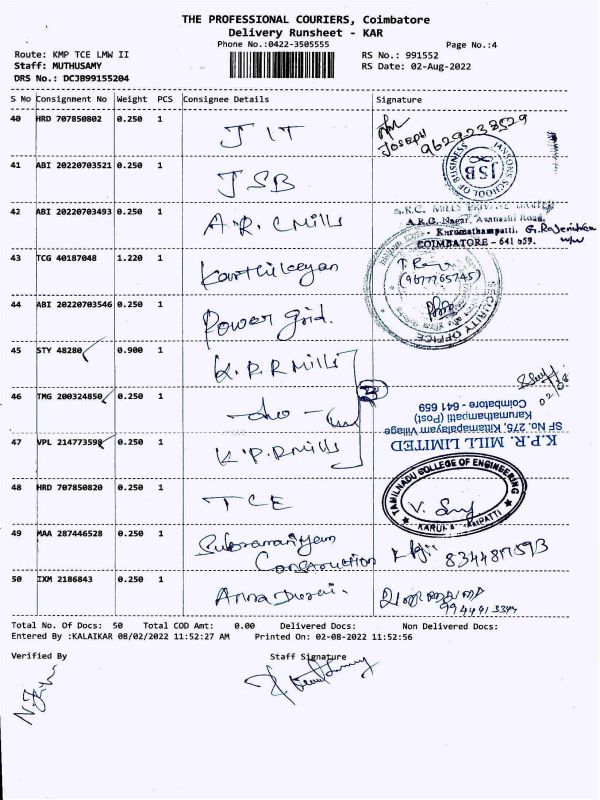 THE PROFESSIONAL COURIERS, Coimbatore
Delivery Runsheet - KAR
Phone No.:0422-3505555
Page No.:4
Route: KMP TCE LMW II
RS No.: 991552
Staff: MUTHUSAMY
RS Date: 02-Aug-2022
DRS No.: DCJB99155204
S No Consignment No Weight PCS Consignee Details Signature
40 HRD 707850802 0.250 1 JIT
JOSEPH 9629238529
41 ABI 20220703521 0.250 1 JSB
JANSONS SCHOOL OF BUSINESS
JSB
42 ABI 20220703493 0.250 1 A.R.C Mills
A.R.C. Nagar, Avanashi Road,
Kurumathampatti,
COIMBATORE - 641 659.
43 TCG 40187048 1.220 1 Karthikeyan
(9677765745)
44 ABI 20220703546 0.250 1 Power grid.
SECURITY OFFICE
45 STY 48280 0.900 1 K.P.R Mills
46 TMG 200324850 0.250 1 -do-
3
02/08
K.P.R. MILL LIMITED
SF No. 275, Kittampalayam Village
Karumathampatti (Post)
Coimbatore - 641 659
47 VPL 214773598 0.250 1 K.P.R Mills
48 HRD 707850820 0.250 1 TCE
TAMILNADU COLLEGE OF ENGINEERING
49 MAA 287446528 0.250 1 Subramaniyam
Construction
50 IXM 2186843 0.250 1 Annadurai.
Total No. Of Docs: 50 Total COD Amt: 0.00 Delivered Docs: Non Delivered Docs:
Entered By :KALAIKAR 08/02/2022 11:52:27 AM Printed On: 02-08-2022 11:52:56
Verified By Staff Signature